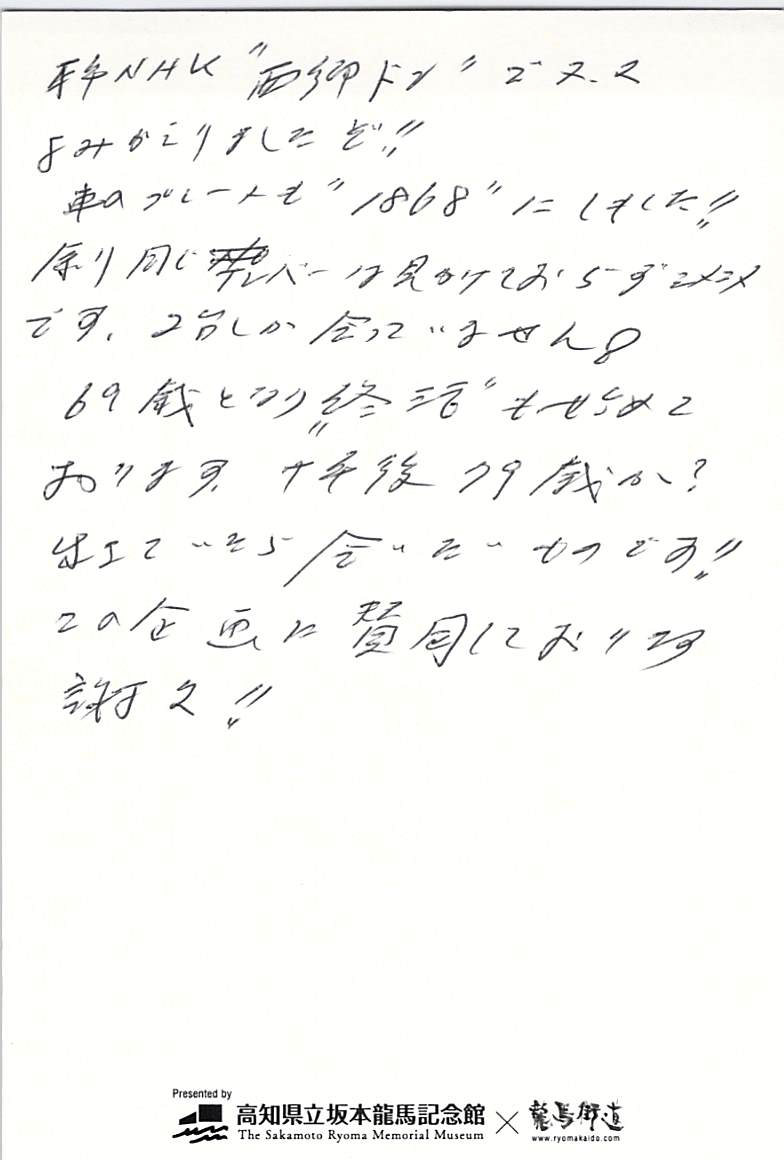 NHK〝西郷ドン〟で又、又
よみがえりましたぞ!!
車のプレートも〝1868〟にしました!!
余り同じナンバーは見かけておらず
です。2台しか会っていません。
69歳となり〝終活〟も始めて
おります。十年後79歳か?
生きていたら会いたいものです!!
この企画に賛同しております
謝々!!
Presented by
高知県立坂本龍馬記念館
The Sakamoto Ryoma Memorial Museum
×
龍馬街道
www.ryomakaido.com